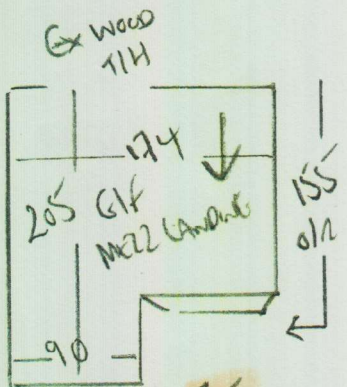 Ex WOOD
T/H
174
205 G/F
MEZZ LANDING
155
O/A
90